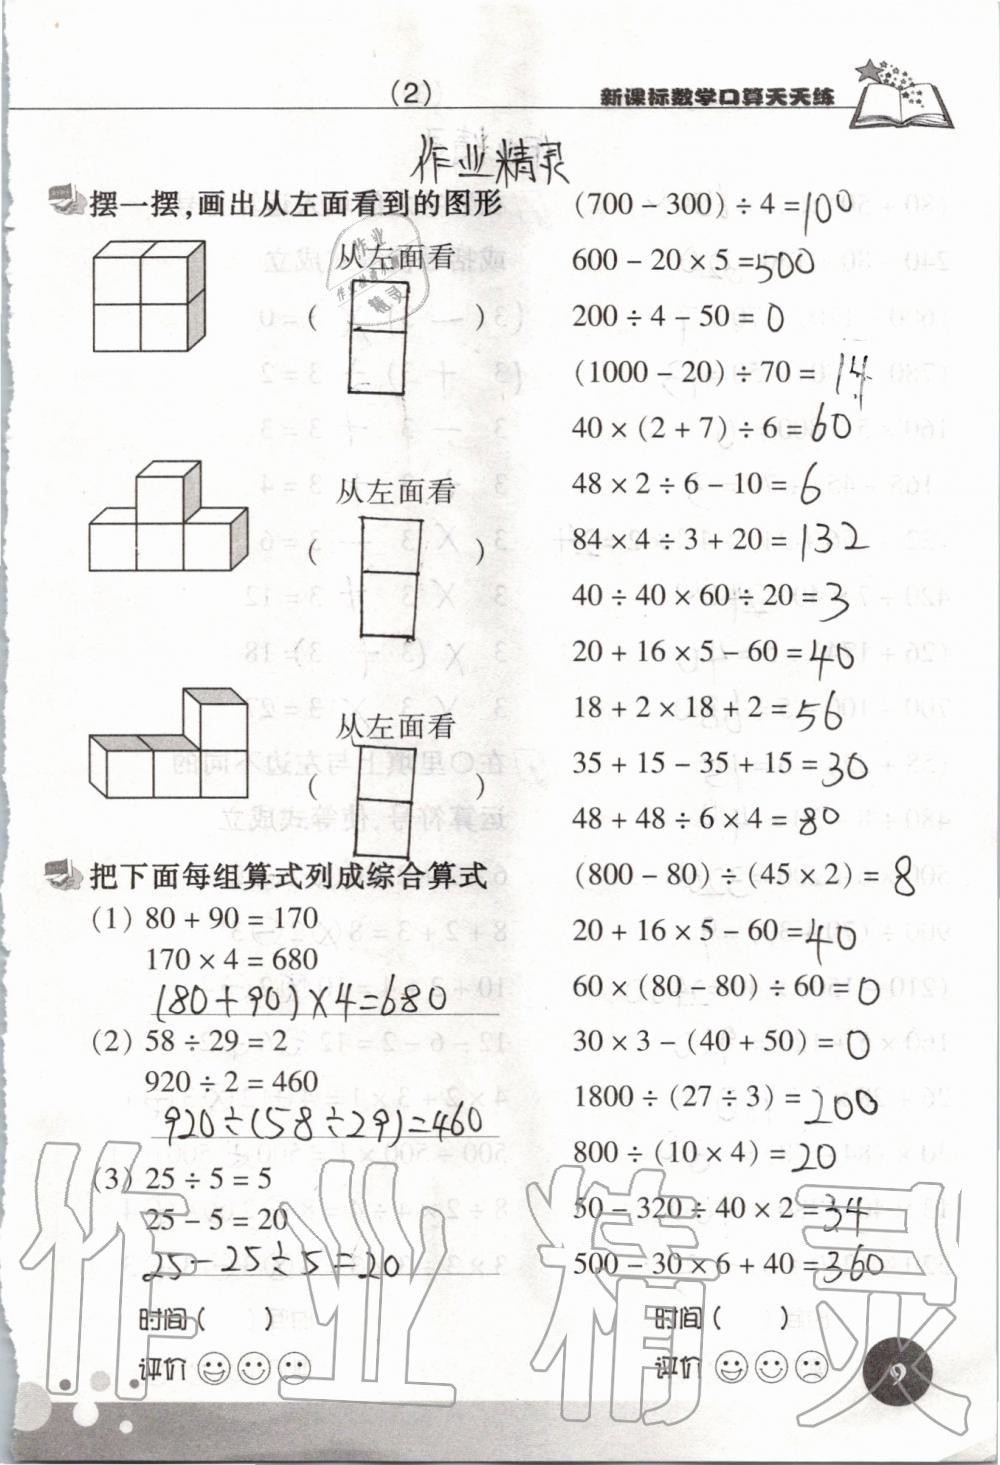 (2)
新课标数学口算天天练
作业精灵
摆一摆,画出从左面看到的图形
从左面看
作业
精灵
(　　)
从左面看
(　　)
从左面看
(　　)
把下面每组算式列成综合算式
(1) 80 + 90 = 170
170 × 4 = 680
(80+90)×4=680
(2) 58 ÷ 29 = 2
920 ÷ 2 = 460
920÷(58÷29)=460
(3) 25 ÷ 5 = 5
25 - 5 = 20
25-25÷5=20
时间(　　)
评价
(700 - 300) ÷ 4 = 100
600 - 20 × 5 = 500
200 ÷ 4 - 50 = 0
(1000 - 20) ÷ 70 = 14
40 × (2 + 7) ÷ 6 = 60
48 × 2 ÷ 6 - 10 = 6
84 × 4 ÷ 3 + 20 = 132
40 ÷ 40 × 60 ÷ 20 = 3
20 + 16 × 5 - 60 = 40
18 + 2 × 18 + 2 = 56
35 + 15 - 35 + 15 = 30
48 + 48 ÷ 6 × 4 = 80
(800 - 80) ÷ (45 × 2) = 8
20 + 16 × 5 - 60 = 40
60 × (80 - 80) ÷ 60 = 0
30 × 3 - (40 + 50) = 0
1800 ÷ (27 ÷ 3) = 200
800 ÷ (10 × 4) = 20
50 - 320 ÷ 40 × 2 = 34
500 - 30 × 6 + 40 = 360
时间(　　)
评价
9
作业精灵